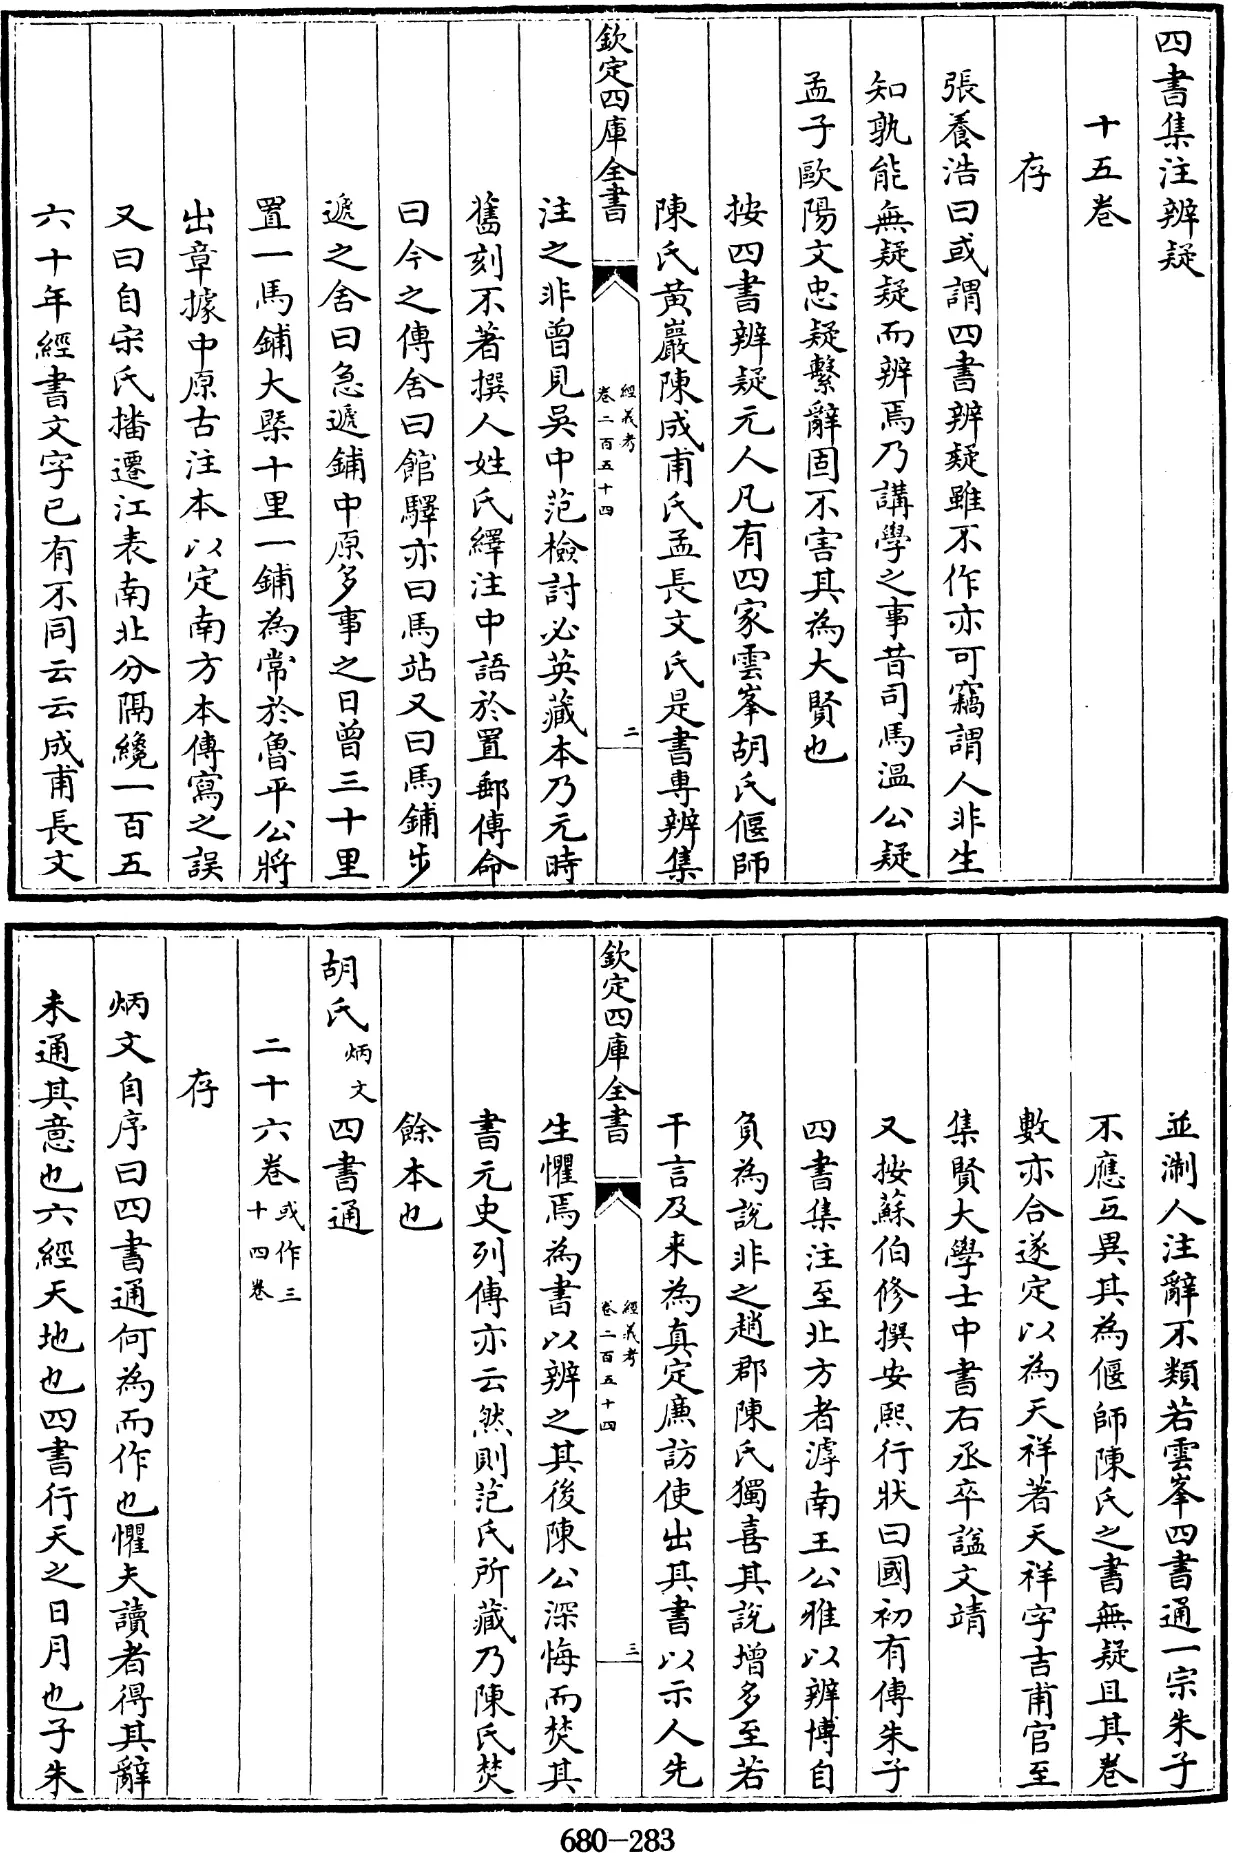 四書集注辨疑
十五卷
存
張養浩曰或謂四書辨疑雖不作亦可竊謂人非生
知孰能無疑疑而辨焉乃講學之事昔司馬溫公疑
孟子歐陽文忠疑繫辭固不害其為大賢也
按四書辨疑元人凡有四家雲峯胡氏偃師
陳氏黃巖陳成甫氏孟長文氏是書專辨集
欽定四庫全書
經義考
卷二百五十四
二
注之非曾見吳中范檢討必英藏本乃元時
舊刻不著撰人姓氏繹注中語於置郵傳命
曰今之傳舍曰館驛亦曰馬站又曰馬鋪步
遞之舍曰急遞鋪中原多事之日曾三十里
置一馬鋪大槩十里一鋪為常於魯平公將
出章據中原古注本以定南方本傳寫之誤
又曰自宋氏播遷江表南北分隔纔一百五
六十年經書文字已有不同云云成甫長文
並淛人注辭不類若雲峯四書通一宗朱子
不應互異其為偃師陳氏之書無疑且其卷
數亦合遂定以為天祥著天祥字吉甫官至
集賢大學士中書右丞卒謚文靖
又按蘇伯修撰安熙行狀曰國初有傳朱子
四書集注至北方者滹南王公雅以辨博自
負為說非之趙郡陳氏獨喜其說增多至若
干言及来為真定廉訪使出其書以示人先
欽定四庫全書
經義考
卷二百五十四
三
生懼焉為書以辨之其後陳公深悔而焚其
書元史列傳亦云然則范氏所藏乃陳氏焚
餘本也
胡氏炳文四書通
二十六卷或作三十四卷
存
炳文自序曰四書通何為而作也懼夫讀者得其辭
未通其意也六經天地也四書行天之日月也子朱
680-283